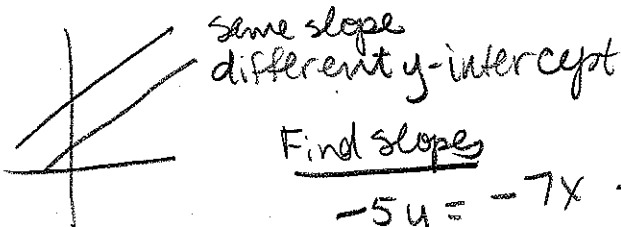 same slope
different y-intercept
Find slopes
-5y = -7x